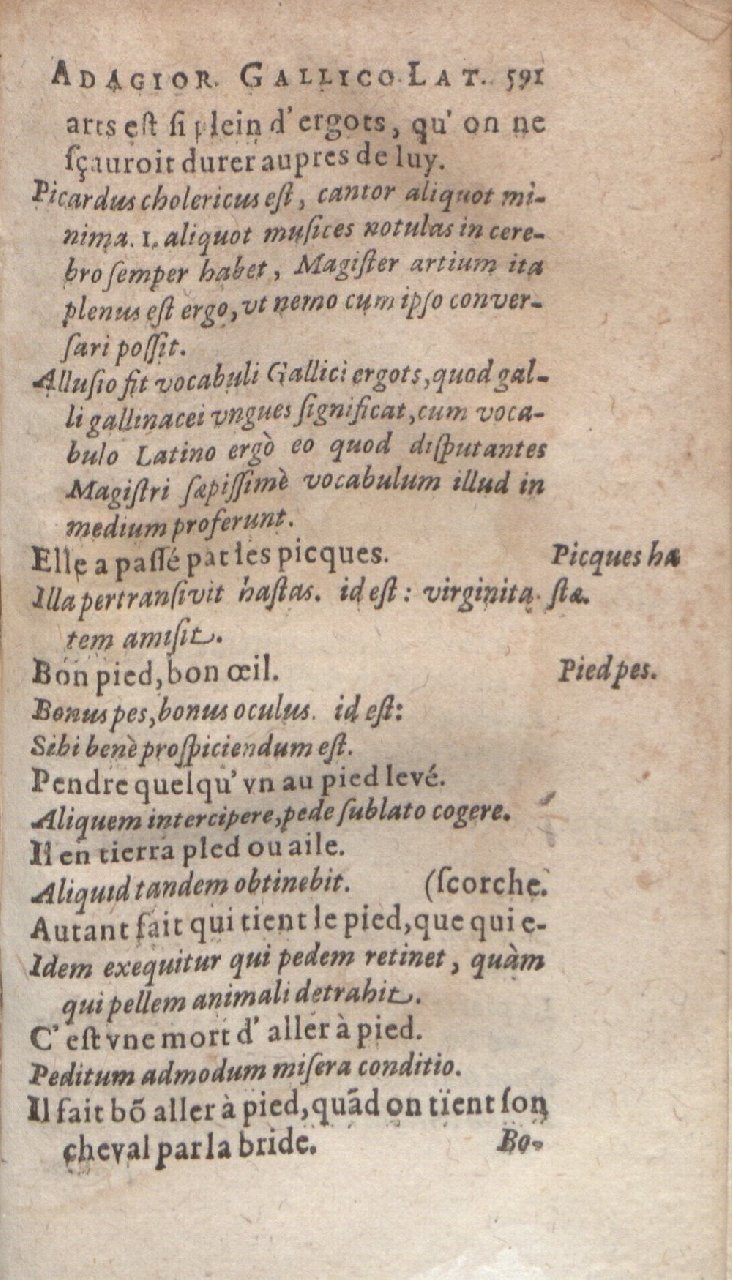 ADAGIOR. GALLICO-LAT. 591
arts eſt ſi plein d'ergots, qu' on ne
ſçauroit durer aupres de luy.
Picardus cholericus eſt, cantor aliquot mi-
nima. 1. aliquot muſices notulas in cere-
bro ſemper habet, Magiſter artium ita
plenus eſt ergo, vt nemo cum ipſo conver-
ſari poſſit.
Alluſio fit vocabuli Gallici ergots, quod gal-
li gallinacei vngues ſignificat, cum voca-
bulo Latino ergò eo quod diſputantes
Magiſtri ſæpiſſimè vocabulum illud in
medium proferunt.
Elle a paſſé par les picques. Picques ha
Illa pertransivit haſtas. id eſt: virginita ſtæ.
tem amiſit.
Bon pied, bon œil. Pied pes.
Bonus pes, bonus oculus. id eſt:
Sibi benè proſpiciendum eſt.
Pendre quelqu' vn au pied levé.
Aliquem intercipere, pede ſublato cogere.
Il en tierra pled ou aile.
Aliquid tandem obtinebit. (ſcorche.
Autant fait qui tient le pied, que qui e-
Idem exequitur qui pedem retinet, quàm
qui pellem animali detrahit.
C' eſt vne mort d' aller à pied.
Peditum admodum miſera conditio.
Il fait bõ aller à pied, quãd on tient ſon
cheval par la bride. Bo-